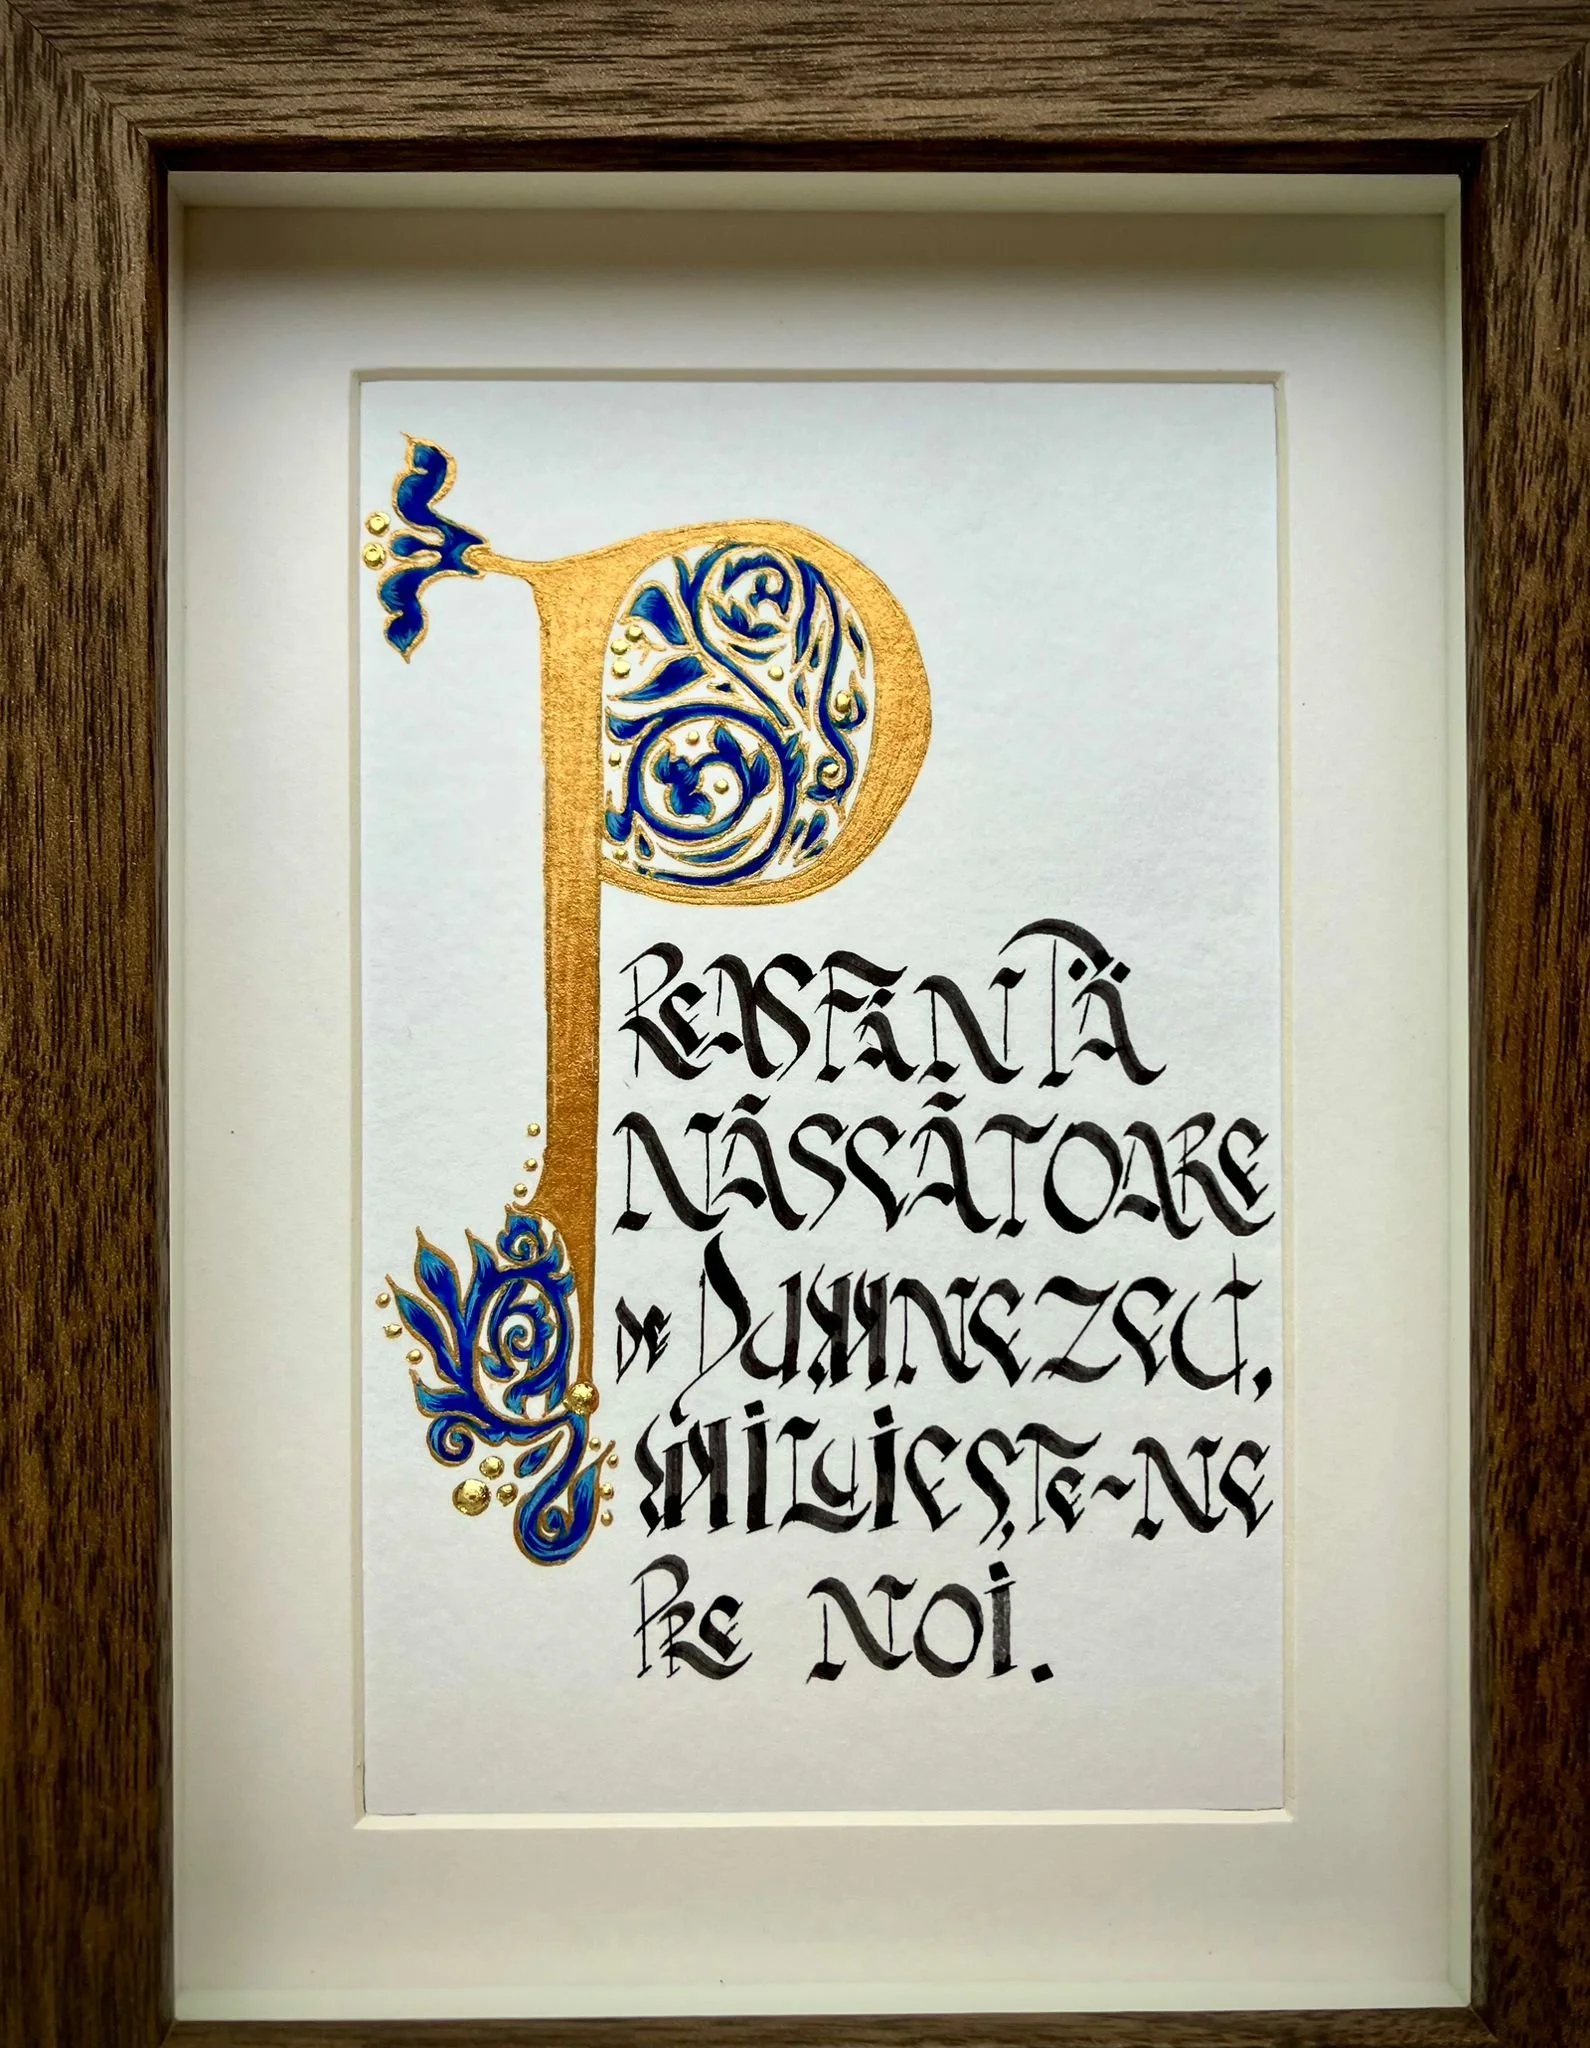 PREASFÂNTĂ
NĂSCĂTOARE
DE DUMNEZEU,
MILUIEȘTE-NE
PRE NOI.